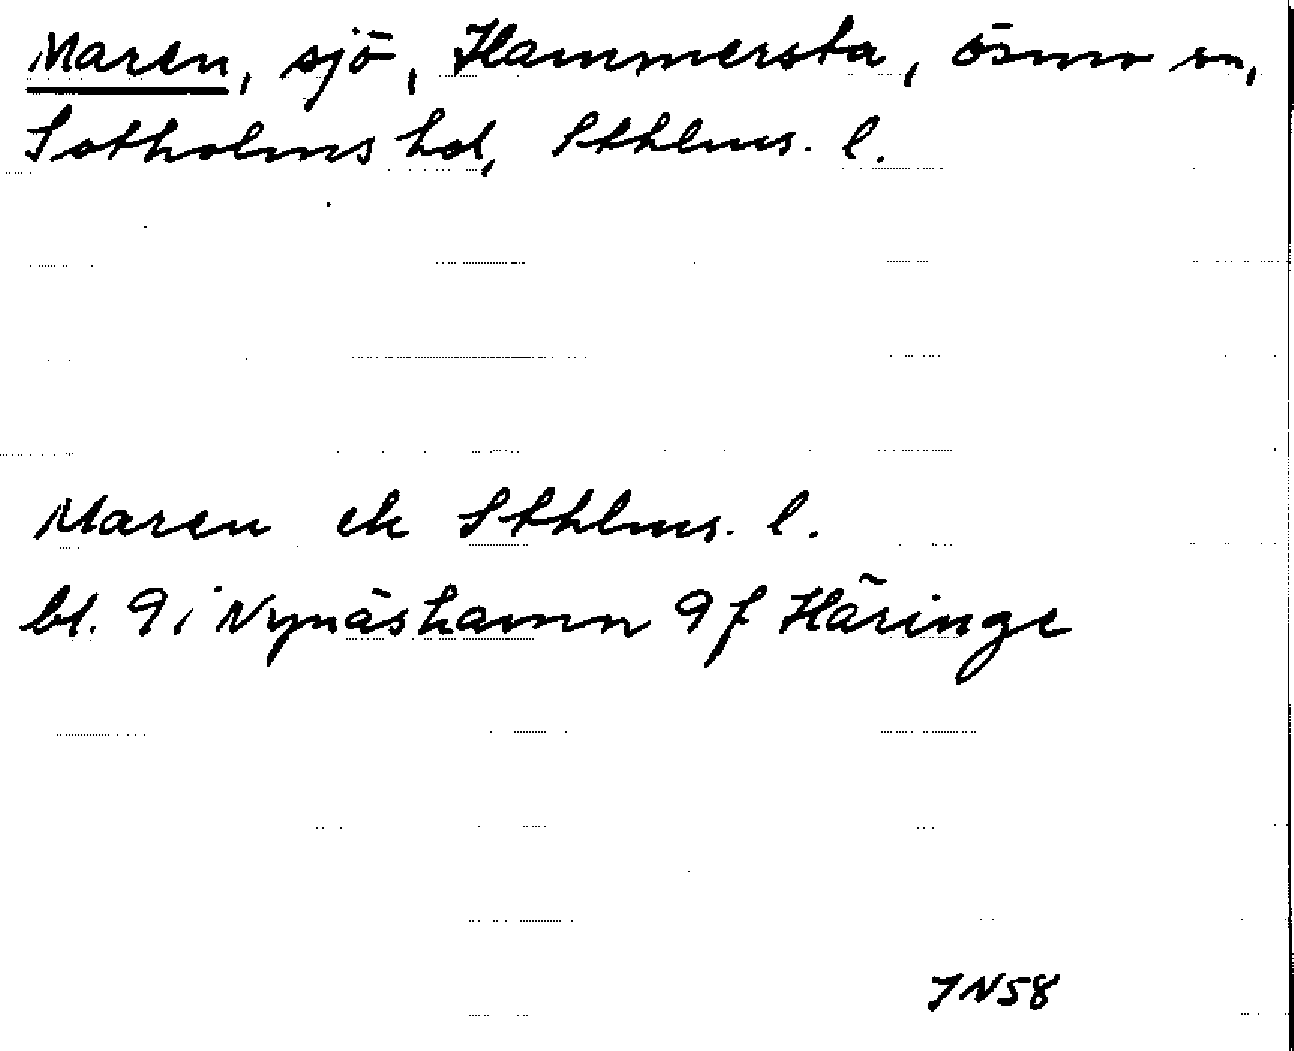 Maren, sjö, Hammersta, Ösmo sn,
Sotholms hd, Sthlms. l.
Maren ek Sthlms. l.
bl. 9i Nynäshamn 9f Häringe
JN58